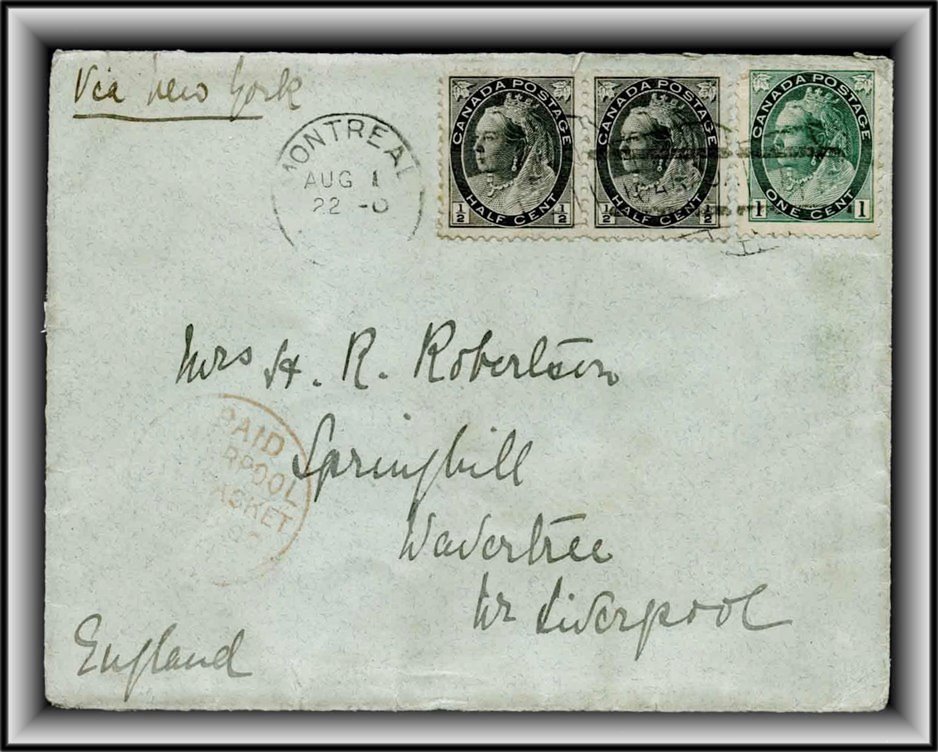 Via New York
MONTREAL
AUG 1
22 -0
CANADA POSTAGE
1/2 HALF CENT 1/2
CANADA POSTAGE
1/2 HALF CENT 1/2
CANADA POSTAGE
1 ONE CENT 1
Mrs H. R. Robertson
PAID
RPOOL
ACKET
Springhill
Wavertree
Nr Liverpool
England